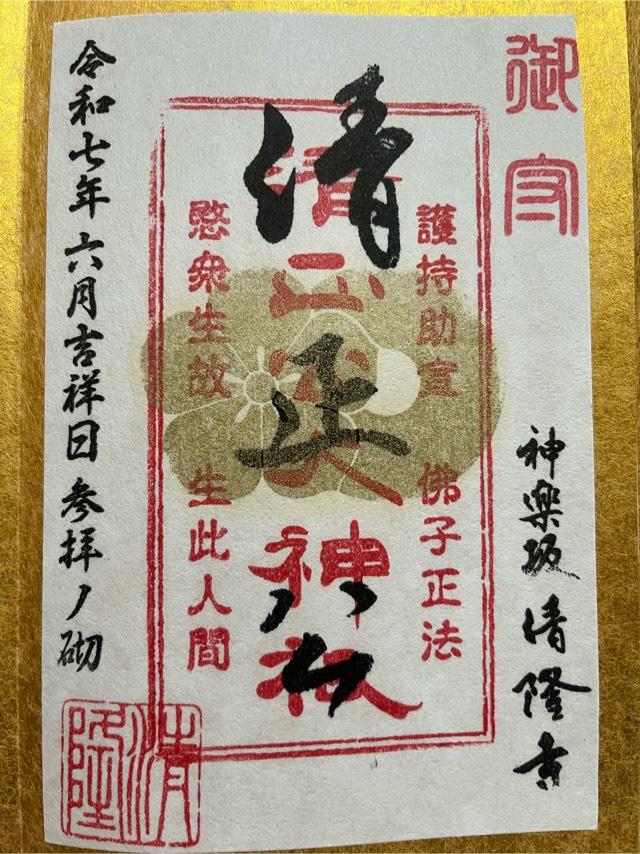 御守
神楽坂 清隆寺
護持助宣 佛子正法
清正公大神祇
清正公
愍衆生故 生此人間
令和七年六月吉祥日 参拝ノ砌
清隆